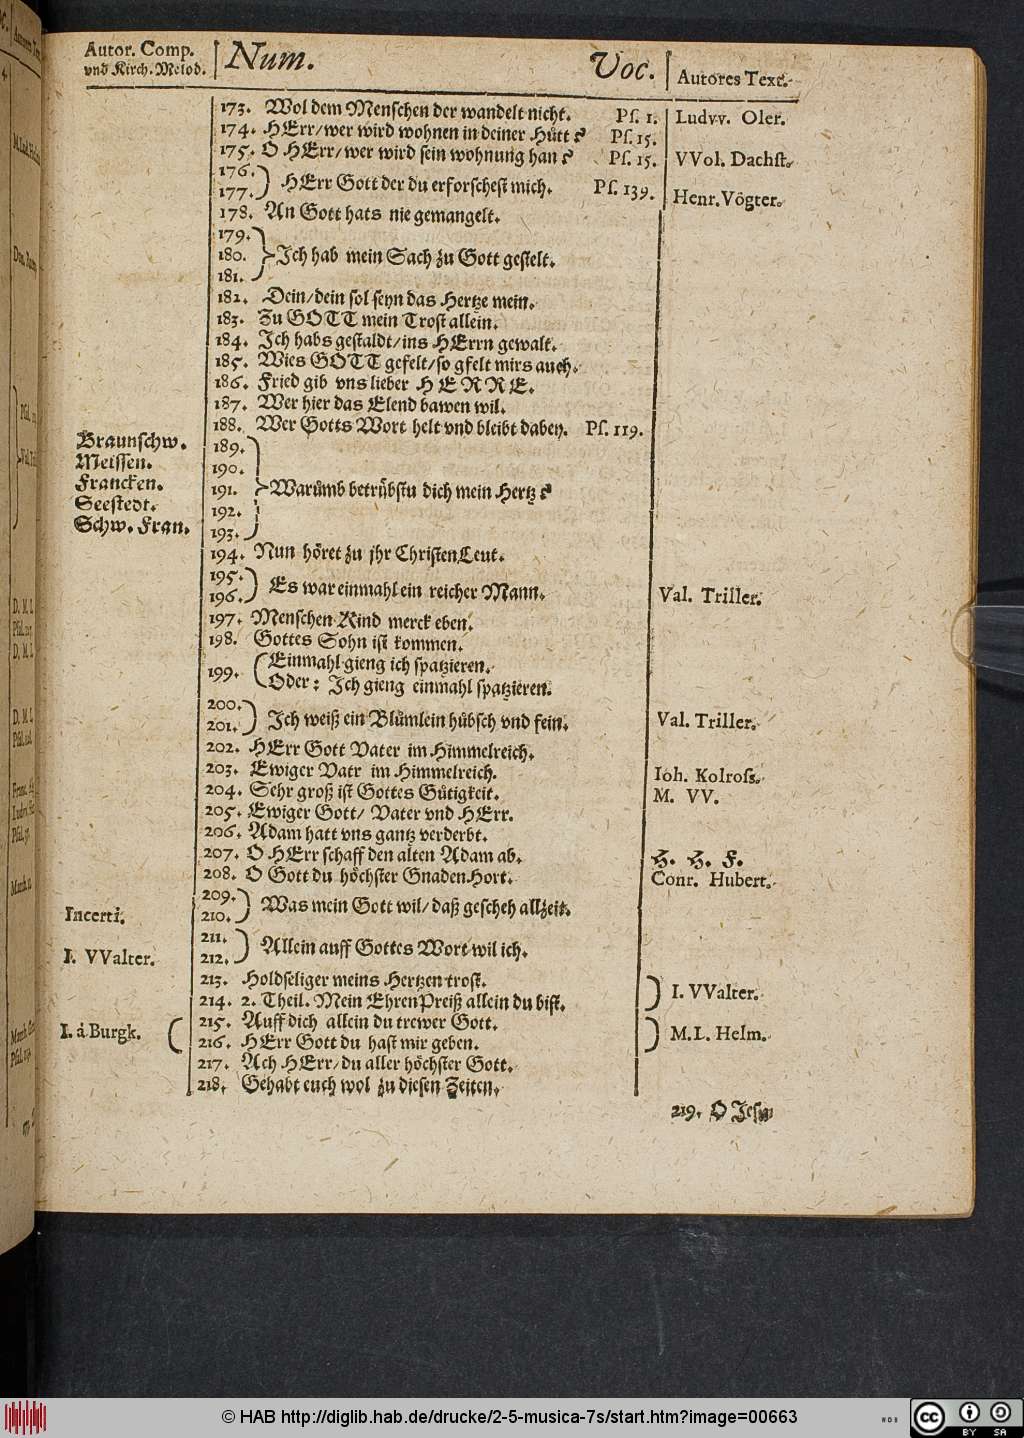 Autor. Comp. Num. Voc. Autores Text.
vnd Kirch. Melod.
173. Wol dem Menschen der wandelt nicht. Ps. 1. Ludvv. Oler.
174. HErr/wer wird wohnen in deiner Hütt? Ps. 15.
175. O HErr/wer wird sein wohnung han? Ps. 15. VVol. Dachst.
176.
177. HErr Gott der du erforschest mich. Ps. 139. Henr. Vögter.
178. An Gott hats nie gemangelt.
179.
180. Ich hab mein Sach zu Gott gestelt.
181.
182. Dein/dein sol seyn das Hertze mein.
183. Zu GOTT mein Trost allein.
184. Ich habs gestaldt/ins HErrn gewalt.
185. Wies GOTT gefelt/so gfelt mirs auch.
186. Fried gib vns lieber HERRE.
187. Wer hier das Elend bawen wil.
188. Wer Gotts Wort helt vnd bleibt dabey. Ps. 119.
Braunschw. 189.
Meissen. 190.
Francken. 191. Warümb betrübstu dich mein Hertz?
Seestedt. 192.
Schw. Fran. 193.
194. Nun höret zu jhr Christen Leut.
195.
196. Es war einmahl ein reicher Mann. Val. Triller.
197. Menschen Kind merck eben.
198. Gottes Sohn ist kommen.
199. Einmahl gieng ich spatzieren.
Oder: Ich gieng einmahl spatzieren.
200.
201. Ich weiß ein Blümlein hübsch vnd fein. Val. Triller.
202. HErr Gott Vater im Himmelreich.
203. Ewiger Vatr im Himmelreich. Ioh. Kolross.
204. Sehr groß ist Gottes Gütigkeit. M. VV.
205. Ewiger Gott/ Vater vnd HErr.
206. Adam hatt vns gantz verderbt.
207. O HErr schaff den alten Adam ab. H. H. F.
208. O Gott du höchster Gnaden Hort. Conr. Hubert.
209.
Incerti. 210. Was mein Gott wil/ daß gescheh allzeit.
211.
I. VValter. 212. Allein auff Gottes Wort wil ich.
213. Holdseliger meins Hertzen trost.
214. 2. Theil. Mein Ehren Preiß allein du bist. I. VValter.
I. à Burgk. 215. Auff dich allein du trewer Gott. M. L. Helm.
216. HErr Gott du hast mir geben.
217. Ach HErr/du aller höchster Gott.
218. Gehabt euch wol zu diesen Zeiten.
219. O Jesu
© HAB http://diglib.hab.de/drucke/2-5-musica-7s/start.htm?image=00663
WDB cc BY SA